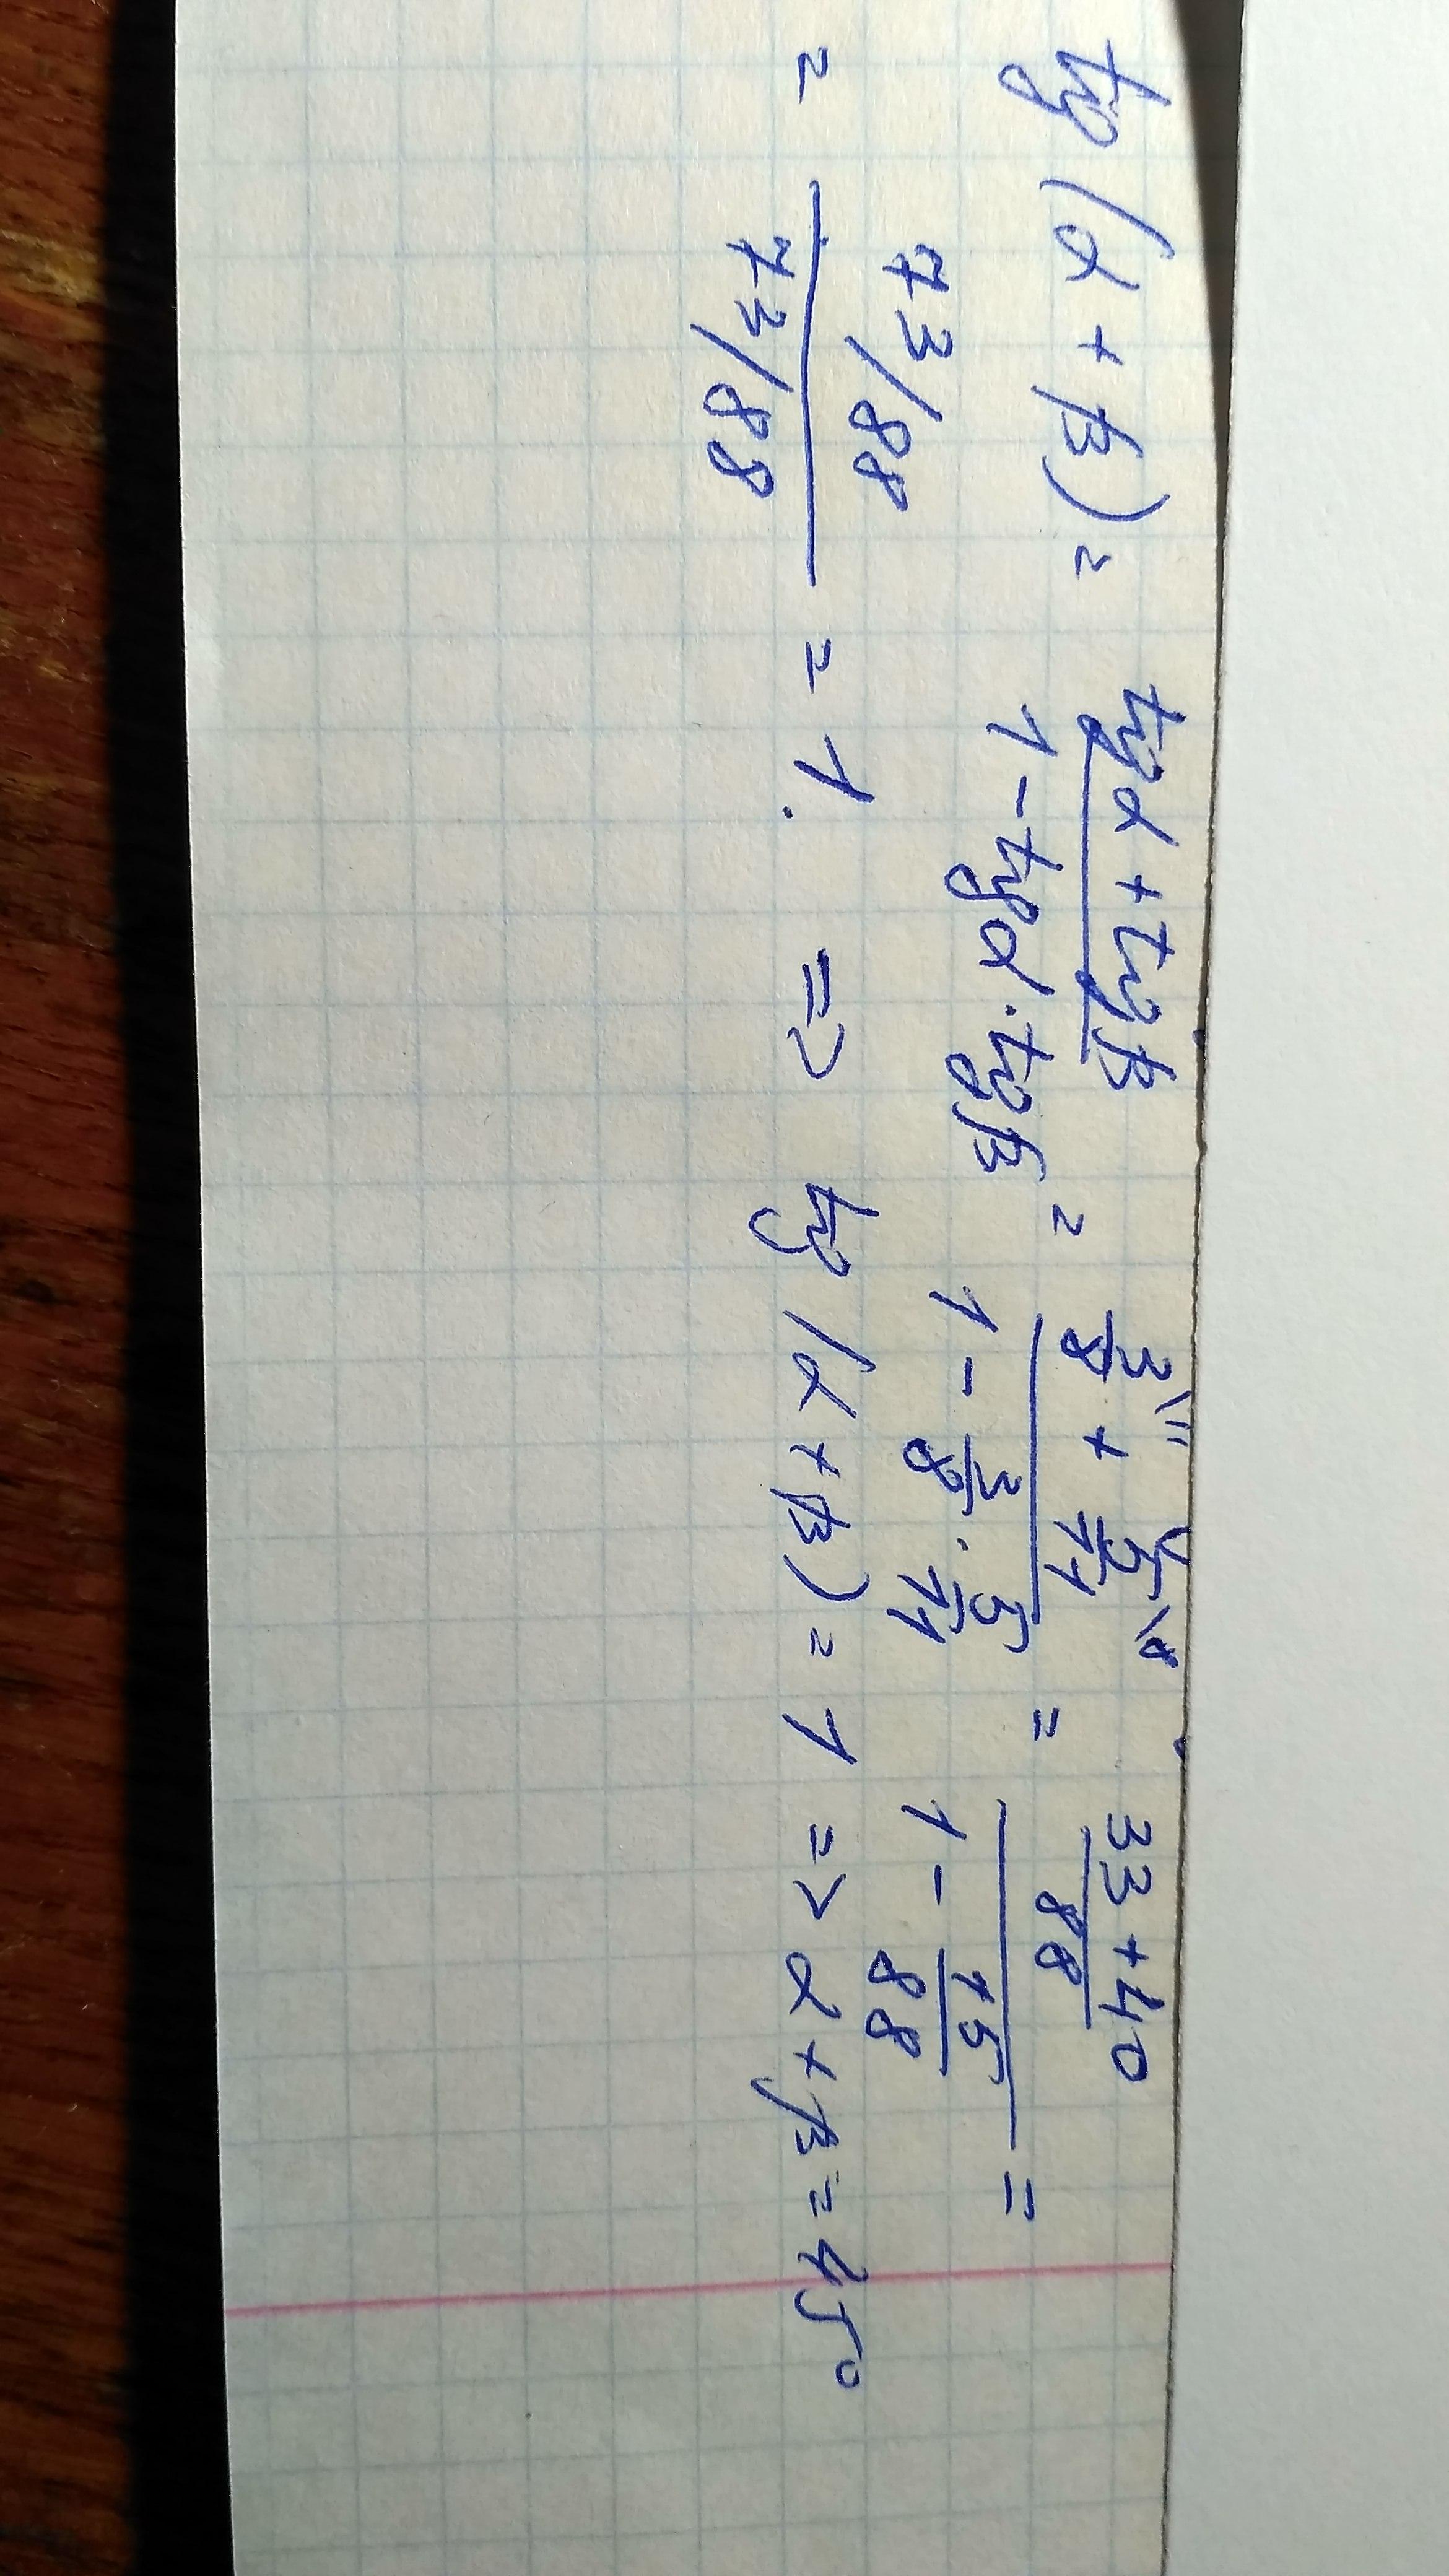 tg(α+β) = (tgα+tgβ)/(1-tgα·tgβ) = (3/8 \11 + 5/11 \8)/(1 - 3/8 · 5/11) = ((33+40)/88)/(1 - 15/88) =
= (73/88)/(73/88) = 1. => tg(α+β) = 1 => α+β = 45°